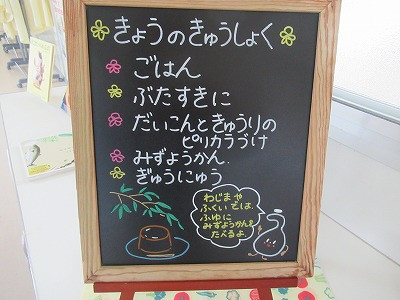 きょうのきゅうしょく
ごはん
ぶたすきに
だいこんときゅうりの
ピリカラづけ
みずようかん.
ぎゅうにゅう
わじまや
ふくいでは、
ふゆに
みずようかんを
たべるよ.